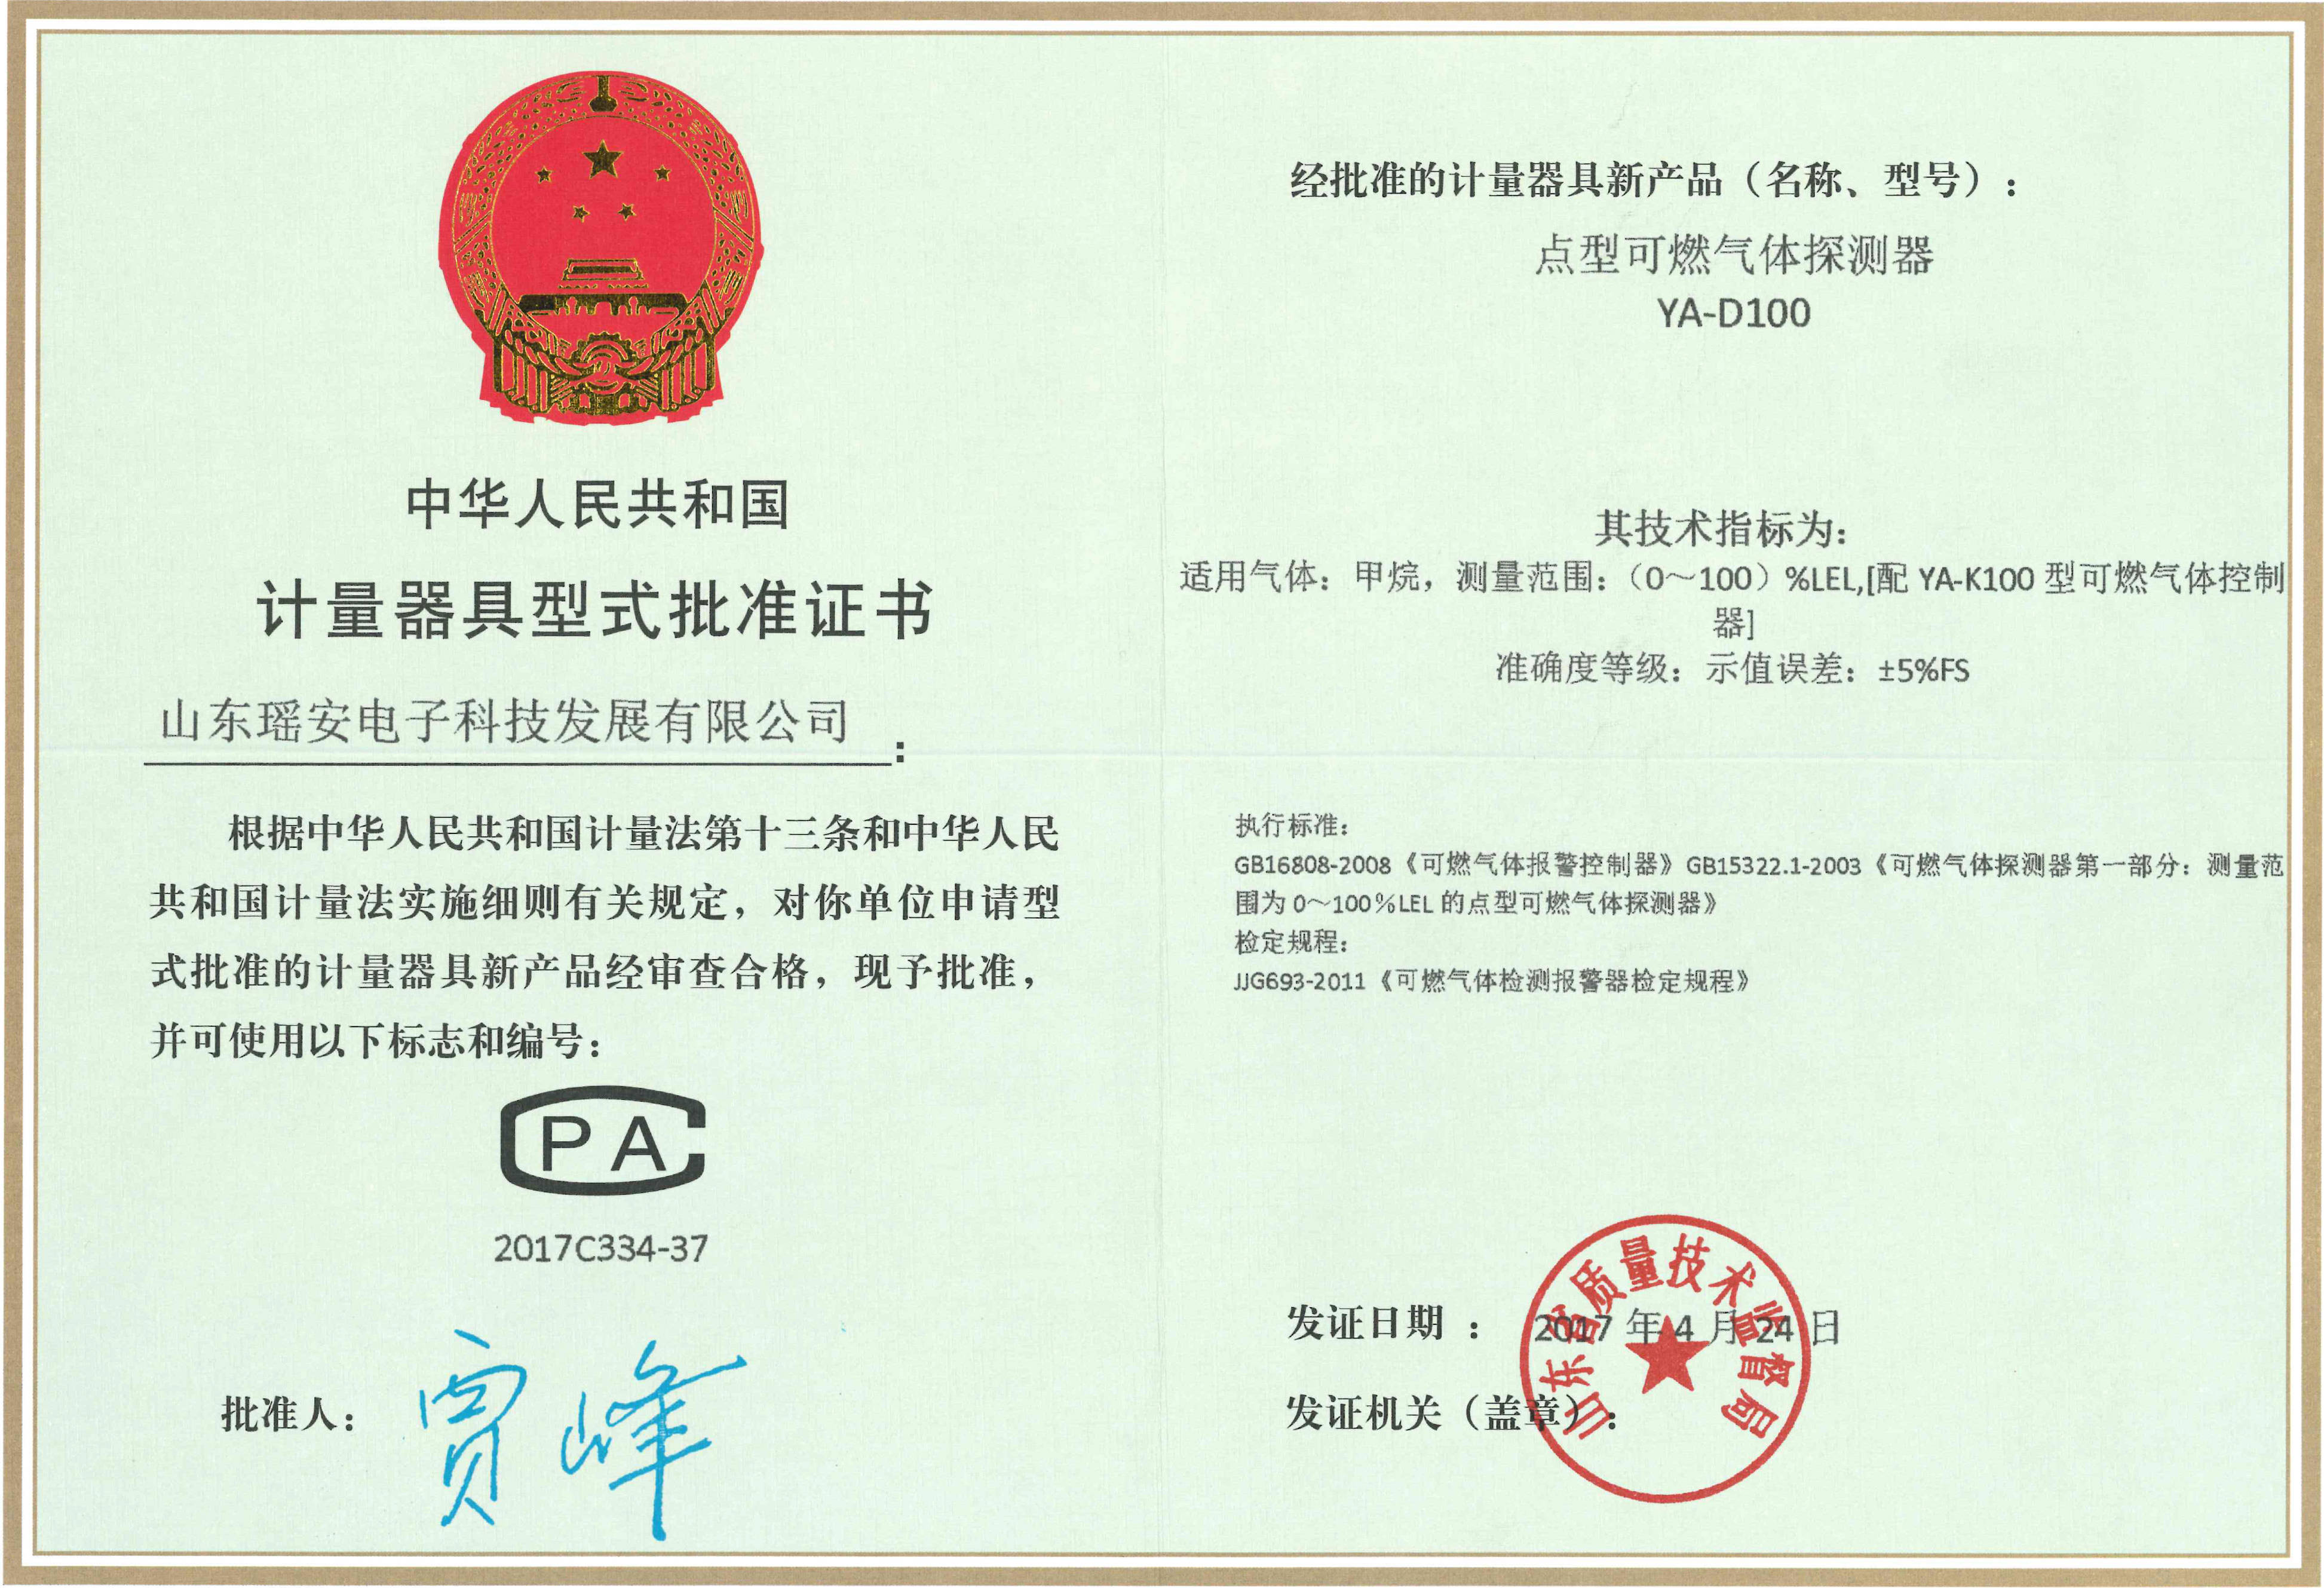 中华人民共和国
计量器具型式批准证书
山东瑶安电子科技发展有限公司：
根据中华人民共和国计量法第十三条和中华人民
共和国计量法实施细则有关规定，对你单位申请型
式批准的计量器具新产品经审查合格，现予批准，
并可使用以下标志和编号：
CPA
2017C334-37
批准人：贾峰
经批准的计量器具新产品（名称、型号）：
点型可燃气体探测器
YA-D100
其技术指标为：
适用气体：甲烷，测量范围：（0～100）%LEL,[配 YA-K100 型可燃气体控制
器]
准确度等级：示值误差：±5%FS
执行标准：
GB16808-2008《可燃气体报警控制器》GB15322.1-2003《可燃气体探测器第一部分：测量范
围为 0～100%LEL 的点型可燃气体探测器》
检定规程：
JJG693-2011《可燃气体检测报警器检定规程》
发证日期 ： 2017 年 4 月 24 日
发证机关（盖章）：
山东省质量技术监督局